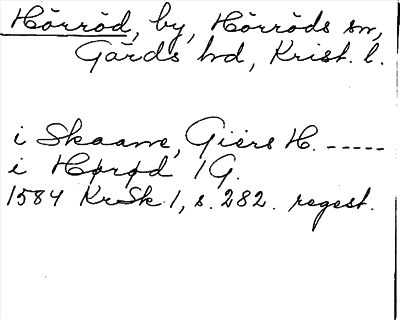 Hörröd, by, Hörröds sn,
Gärds hd, Krist. l.
i Skaane, Giers H. -----
i Hørød 1 G.
1584 KrSk 1, s. 282. regest.